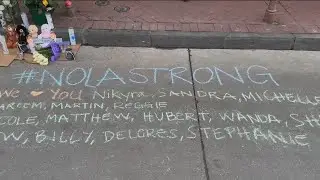 #NOLASTRONG
WE ♥ YOU NIKYRA, SANDRA, MICHELLE
KAREEM, MARTIN, REGGIE
COLE, MATTHEW, HUBERT, WANDA,
BILLY, DELORES, STEPHANIE